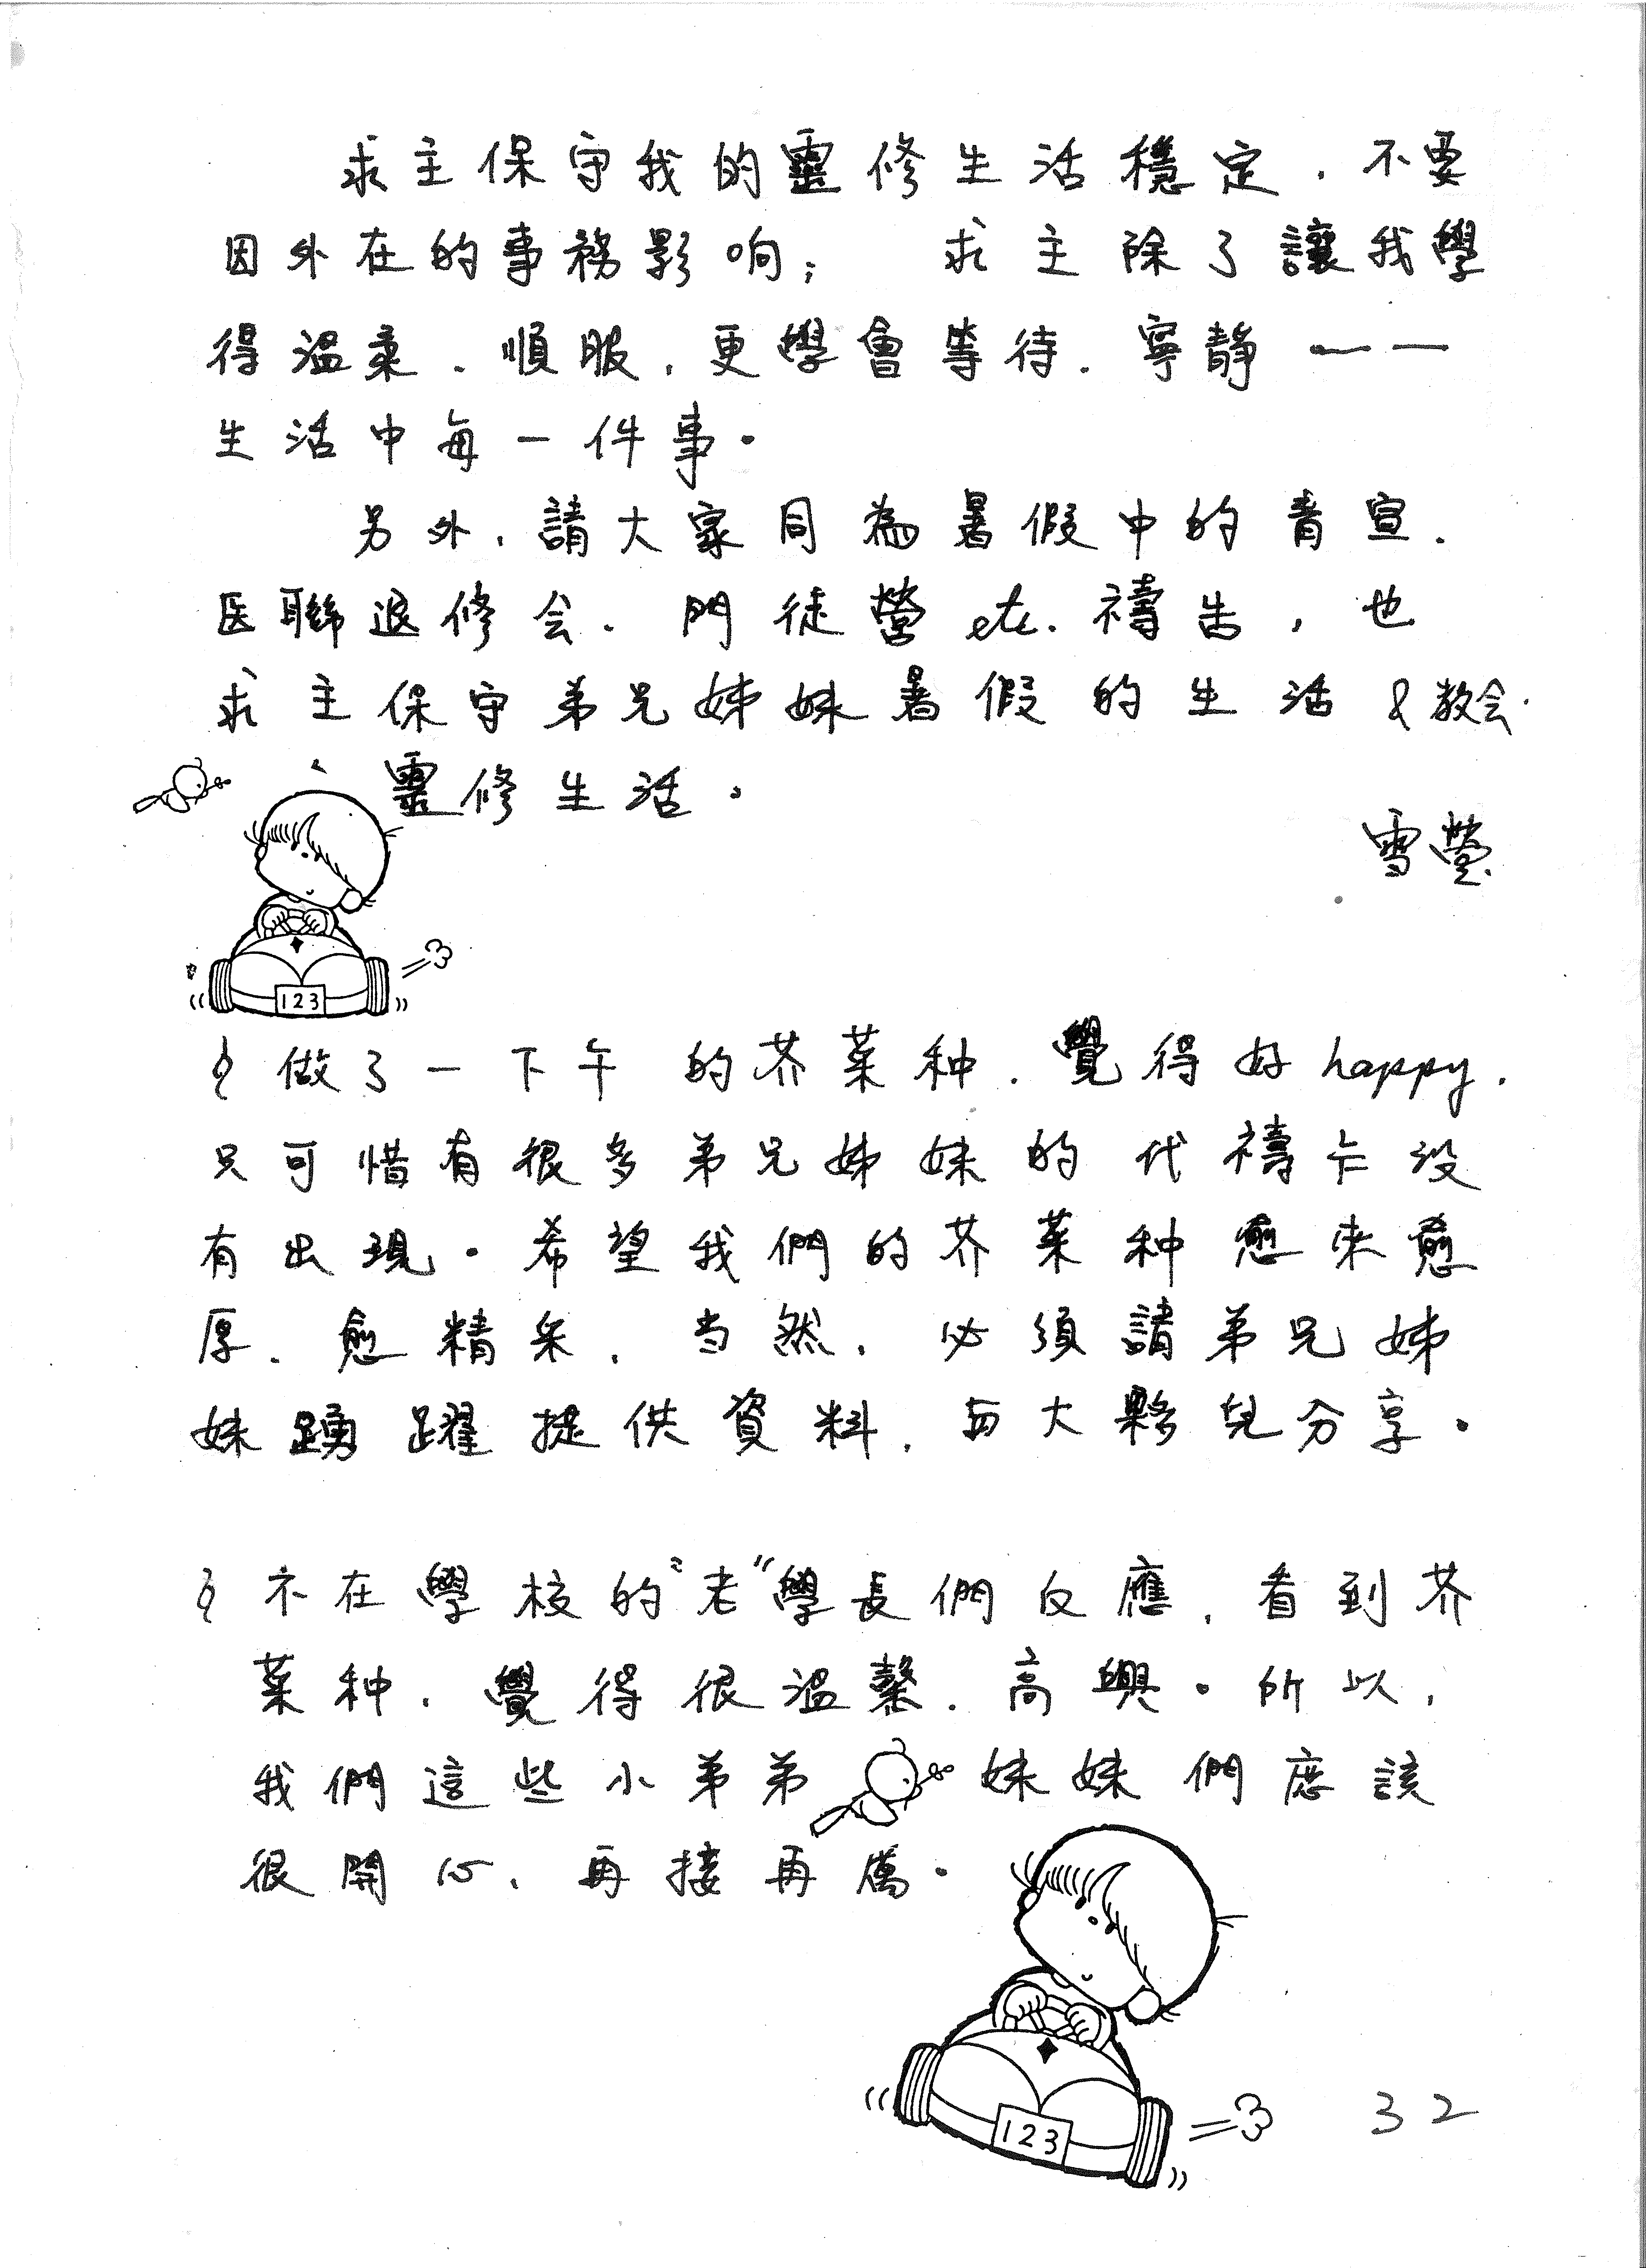 求主保守我的靈修生活穩定，不要
因外在的事務影响；求主除了讓我學
得溫柔、順服，更學會等待、寧靜——
生活中每一件事。
另外，請大家同為暑假中的青宣、
医聯退修会、門徒營etc.禱告，也
求主保守弟兄姊妹暑假的生活&教会、
靈修生活。
雪瑩
123
做了一下午的芥菜种，覺得好happy，
只可惜有很多弟兄姊妹的代禱卡沒
有出現。希望我們的芥菜种愈來愈
厚、愈精采，当然，必須請弟兄姊
妹踴躍提供資料，与大夥兒分享。
不在學校的"老"學長們反應，看到芥
菜种，覺得很溫馨、高興。所以，
我們這些小弟弟 妹妹們应該
很開心，再接再厲。
123
32